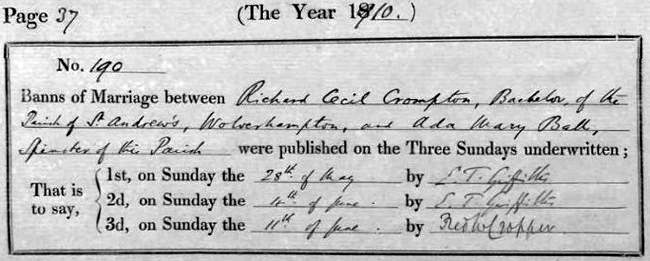 Page 37 (The Year 1910.)
No. 190
Banns of Marriage between Richard Cecil Crompton, Bachelor, of the
Parish of St Andrew's, Wolverhampton, and Ada Mary Ball,
Spinster of this Parish were published on the Three Sundays underwritten;
That is to say,
1st, on Sunday the 28th of May by E. T. Griffiths
2d, on Sunday the 4th of June by E. T. Griffiths
3d, on Sunday the 11th of June by Fred W Cropper